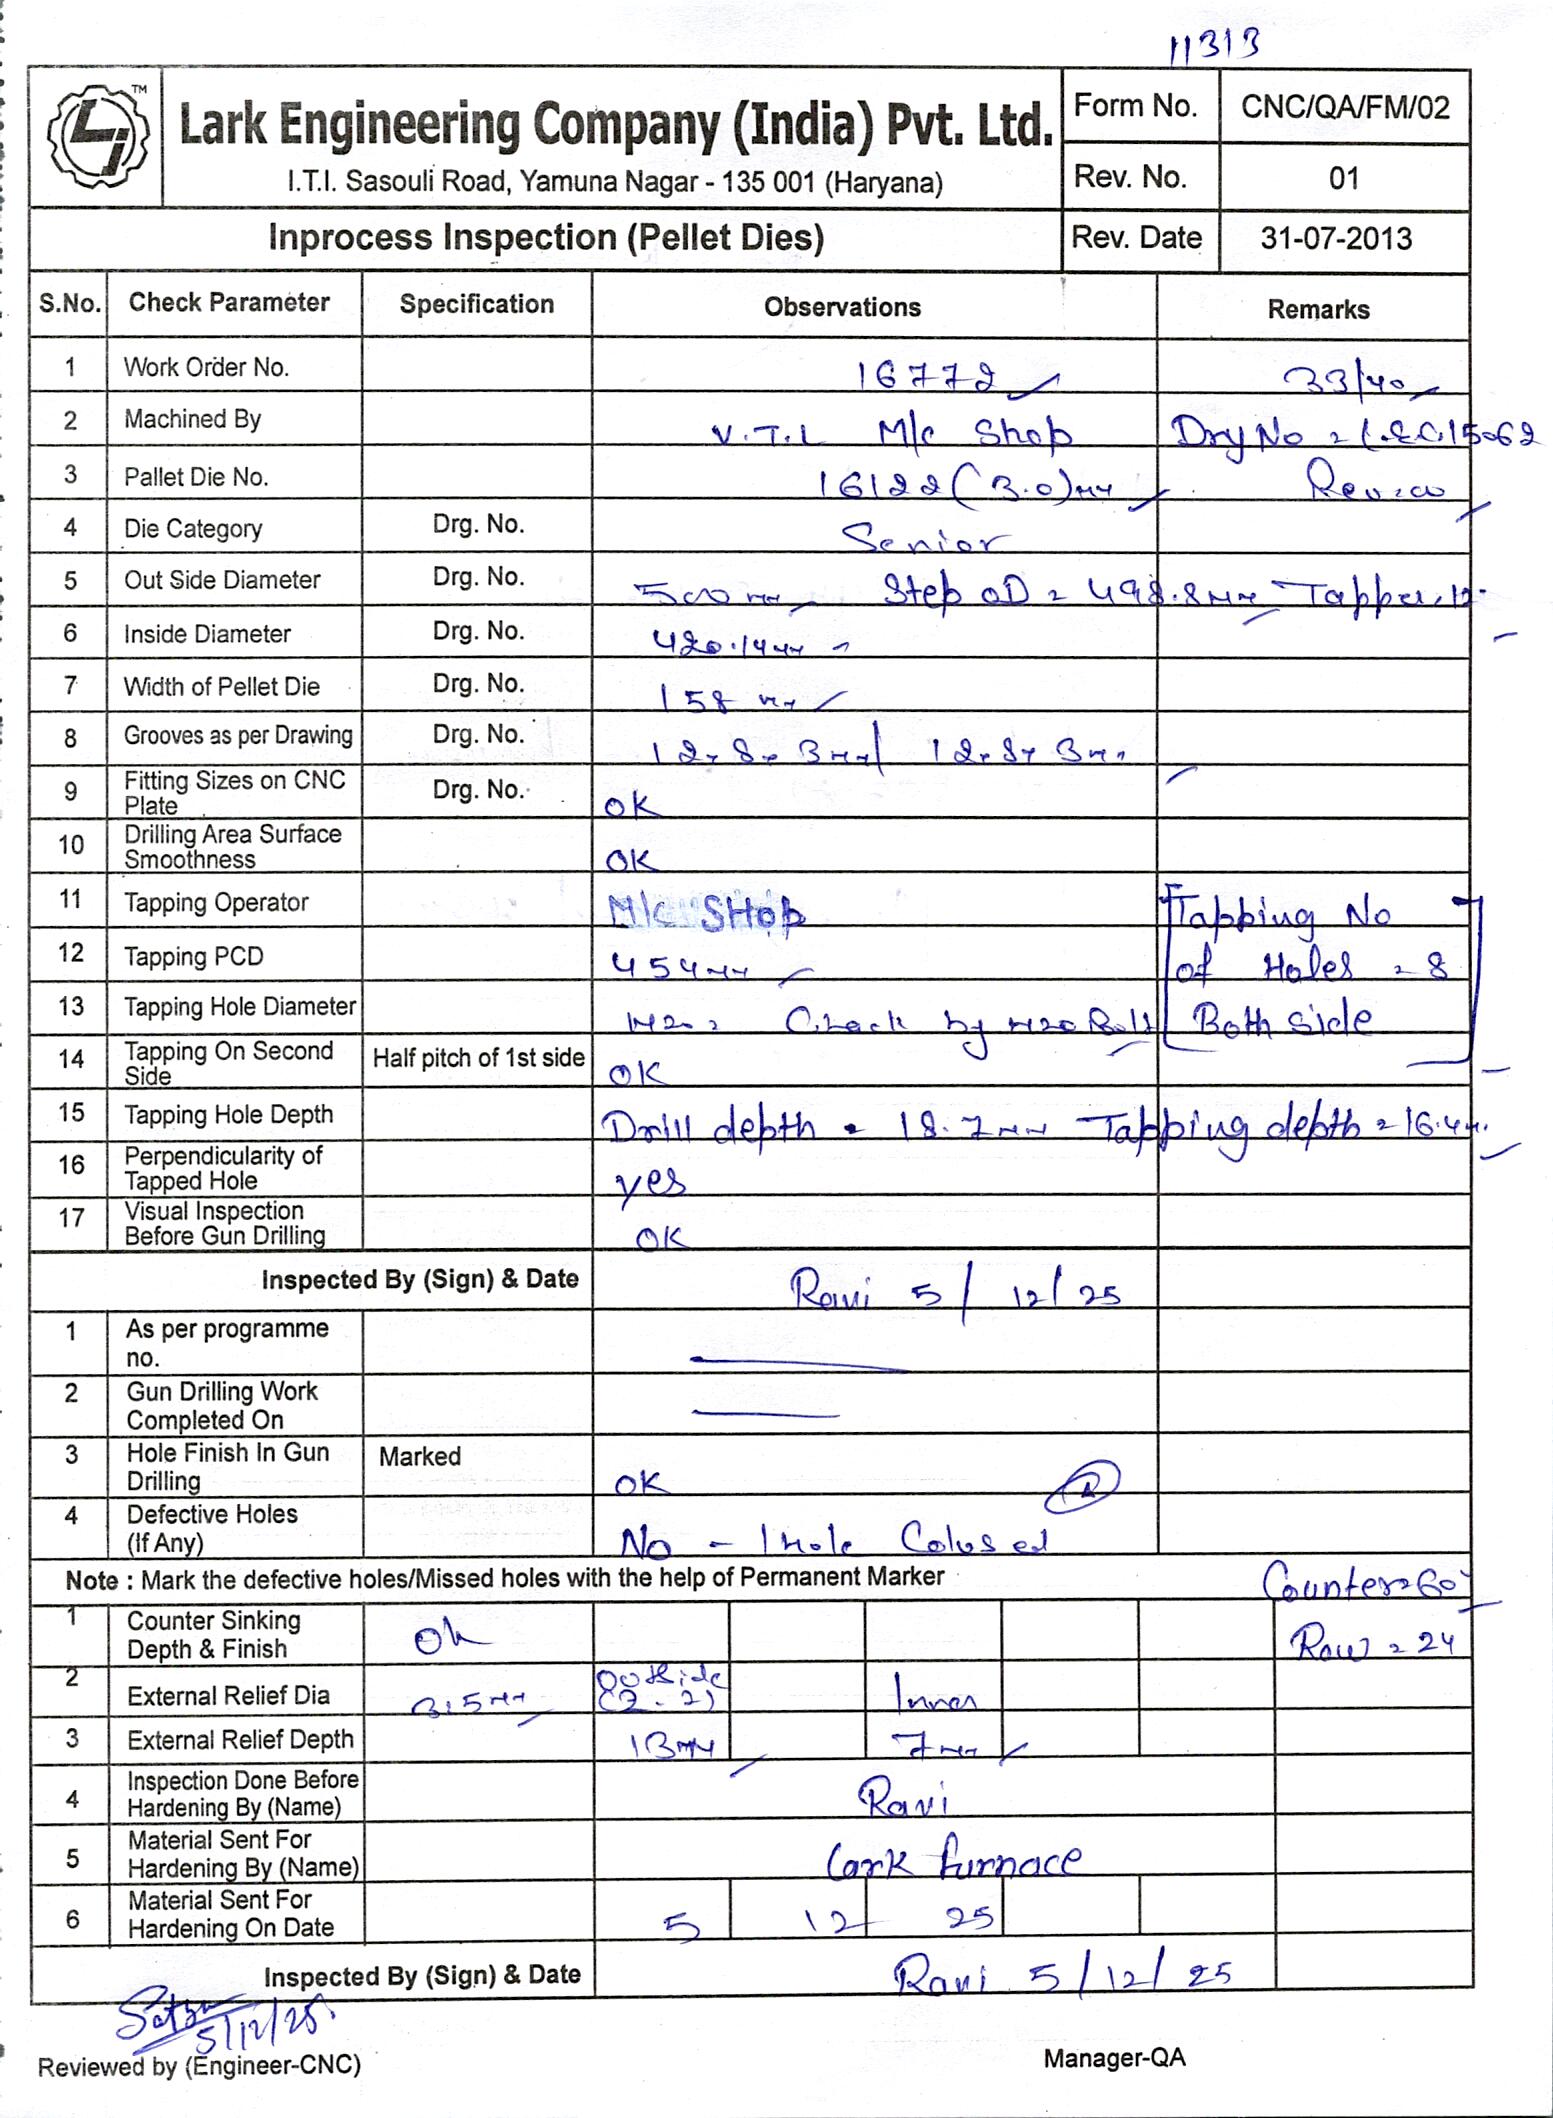 11313
TM
Lark Engineering Company (India) Pvt. Ltd.
I.T.I. Sasouli Road, Yamuna Nagar - 135 001 (Haryana)
Form No. CNC/QA/FM/02
Rev. No. 01
Inprocess Inspection (Pellet Dies)
Rev. Date 31-07-2013
S.No. Check Parameter Specification Observations Remarks
1 Work Order No. 16772 33/40
2 Machined By V.T.L M/c Shop Dry No = L.E.C.15062
3 Pallet Die No. 16122 (3.0)mm Rev.00
4 Die Category Drg. No. Senior
5 Out Side Diameter Drg. No. 500 mm Step OD = 498.8mm Tapper.12.
6 Inside Diameter Drg. No. 420.14mm
7 Width of Pellet Die Drg. No. 158 mm
8 Grooves as per Drawing Drg. No. 12x8x3mm/ 12x8x3mm
9 Fitting Sizes on CNC Plate Drg. No. OK
10 Drilling Area Surface Smoothness OK
11 Tapping Operator M/c SHOP Tapping No
12 Tapping PCD 454mm of Holes = 8
13 Tapping Hole Diameter M20 = Check by M20 Bolt Both Side
14 Tapping On Second Side Half pitch of 1st side OK
15 Tapping Hole Depth Drill depth = 18.7mm Tapping depth = 16.4m.
16 Perpendicularity of Tapped Hole yes
17 Visual Inspection Before Gun Drilling OK
Inspected By (Sign) & Date Ravi 5/12/25
1 As per programme no.
2 Gun Drilling Work Completed On
3 Hole Finish In Gun Drilling Marked OK
4 Defective Holes (If Any) No - 1 Hole Colused
Note : Mark the defective holes/Missed holes with the help of Permanent Marker Counter=60°
1 Counter Sinking Depth & Finish Ok Row = 24
2 External Relief Dia 3.5mm Outside (2-2) Inner
3 External Relief Depth 13mm 7mm
4 Inspection Done Before Hardening By (Name) Ravi
5 Material Sent For Hardening By (Name) Lark furnace
6 Material Sent For Hardening On Date 5 12 25
Inspected By (Sign) & Date Ravi 5/12/25
5/12/25
Reviewed by (Engineer-CNC) Manager-QA